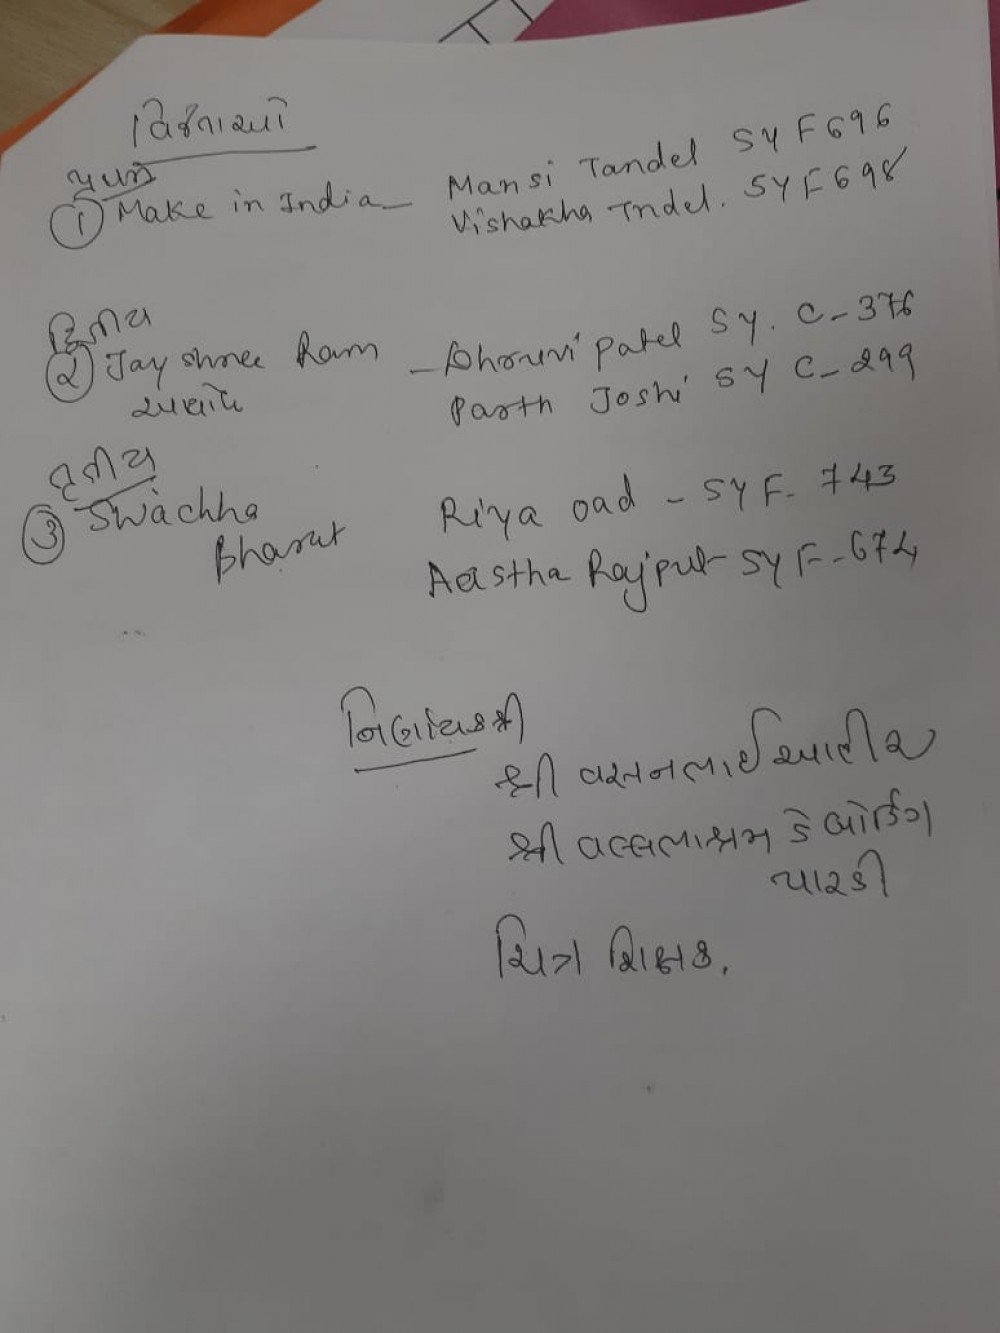 વિજેતાઓ
પ્રથમ
① Make in India - Mansi Tandel SYF 696
Vishakha Tndel. SYF 698
દ્વિતીય
② Jay shree Ram - Dhruvi patel SY. C-376
Parth Joshi SY C-299
તૃતીય
③ Swachha Riya oad - SYF- 743
Bharat Aastha Rajput SYF-674
નિર્ણાયકશ્રી
શ્રી
શ્રી વલ્લભાશ્રમ
પારડી
ચિત્ર શિક્ષક.